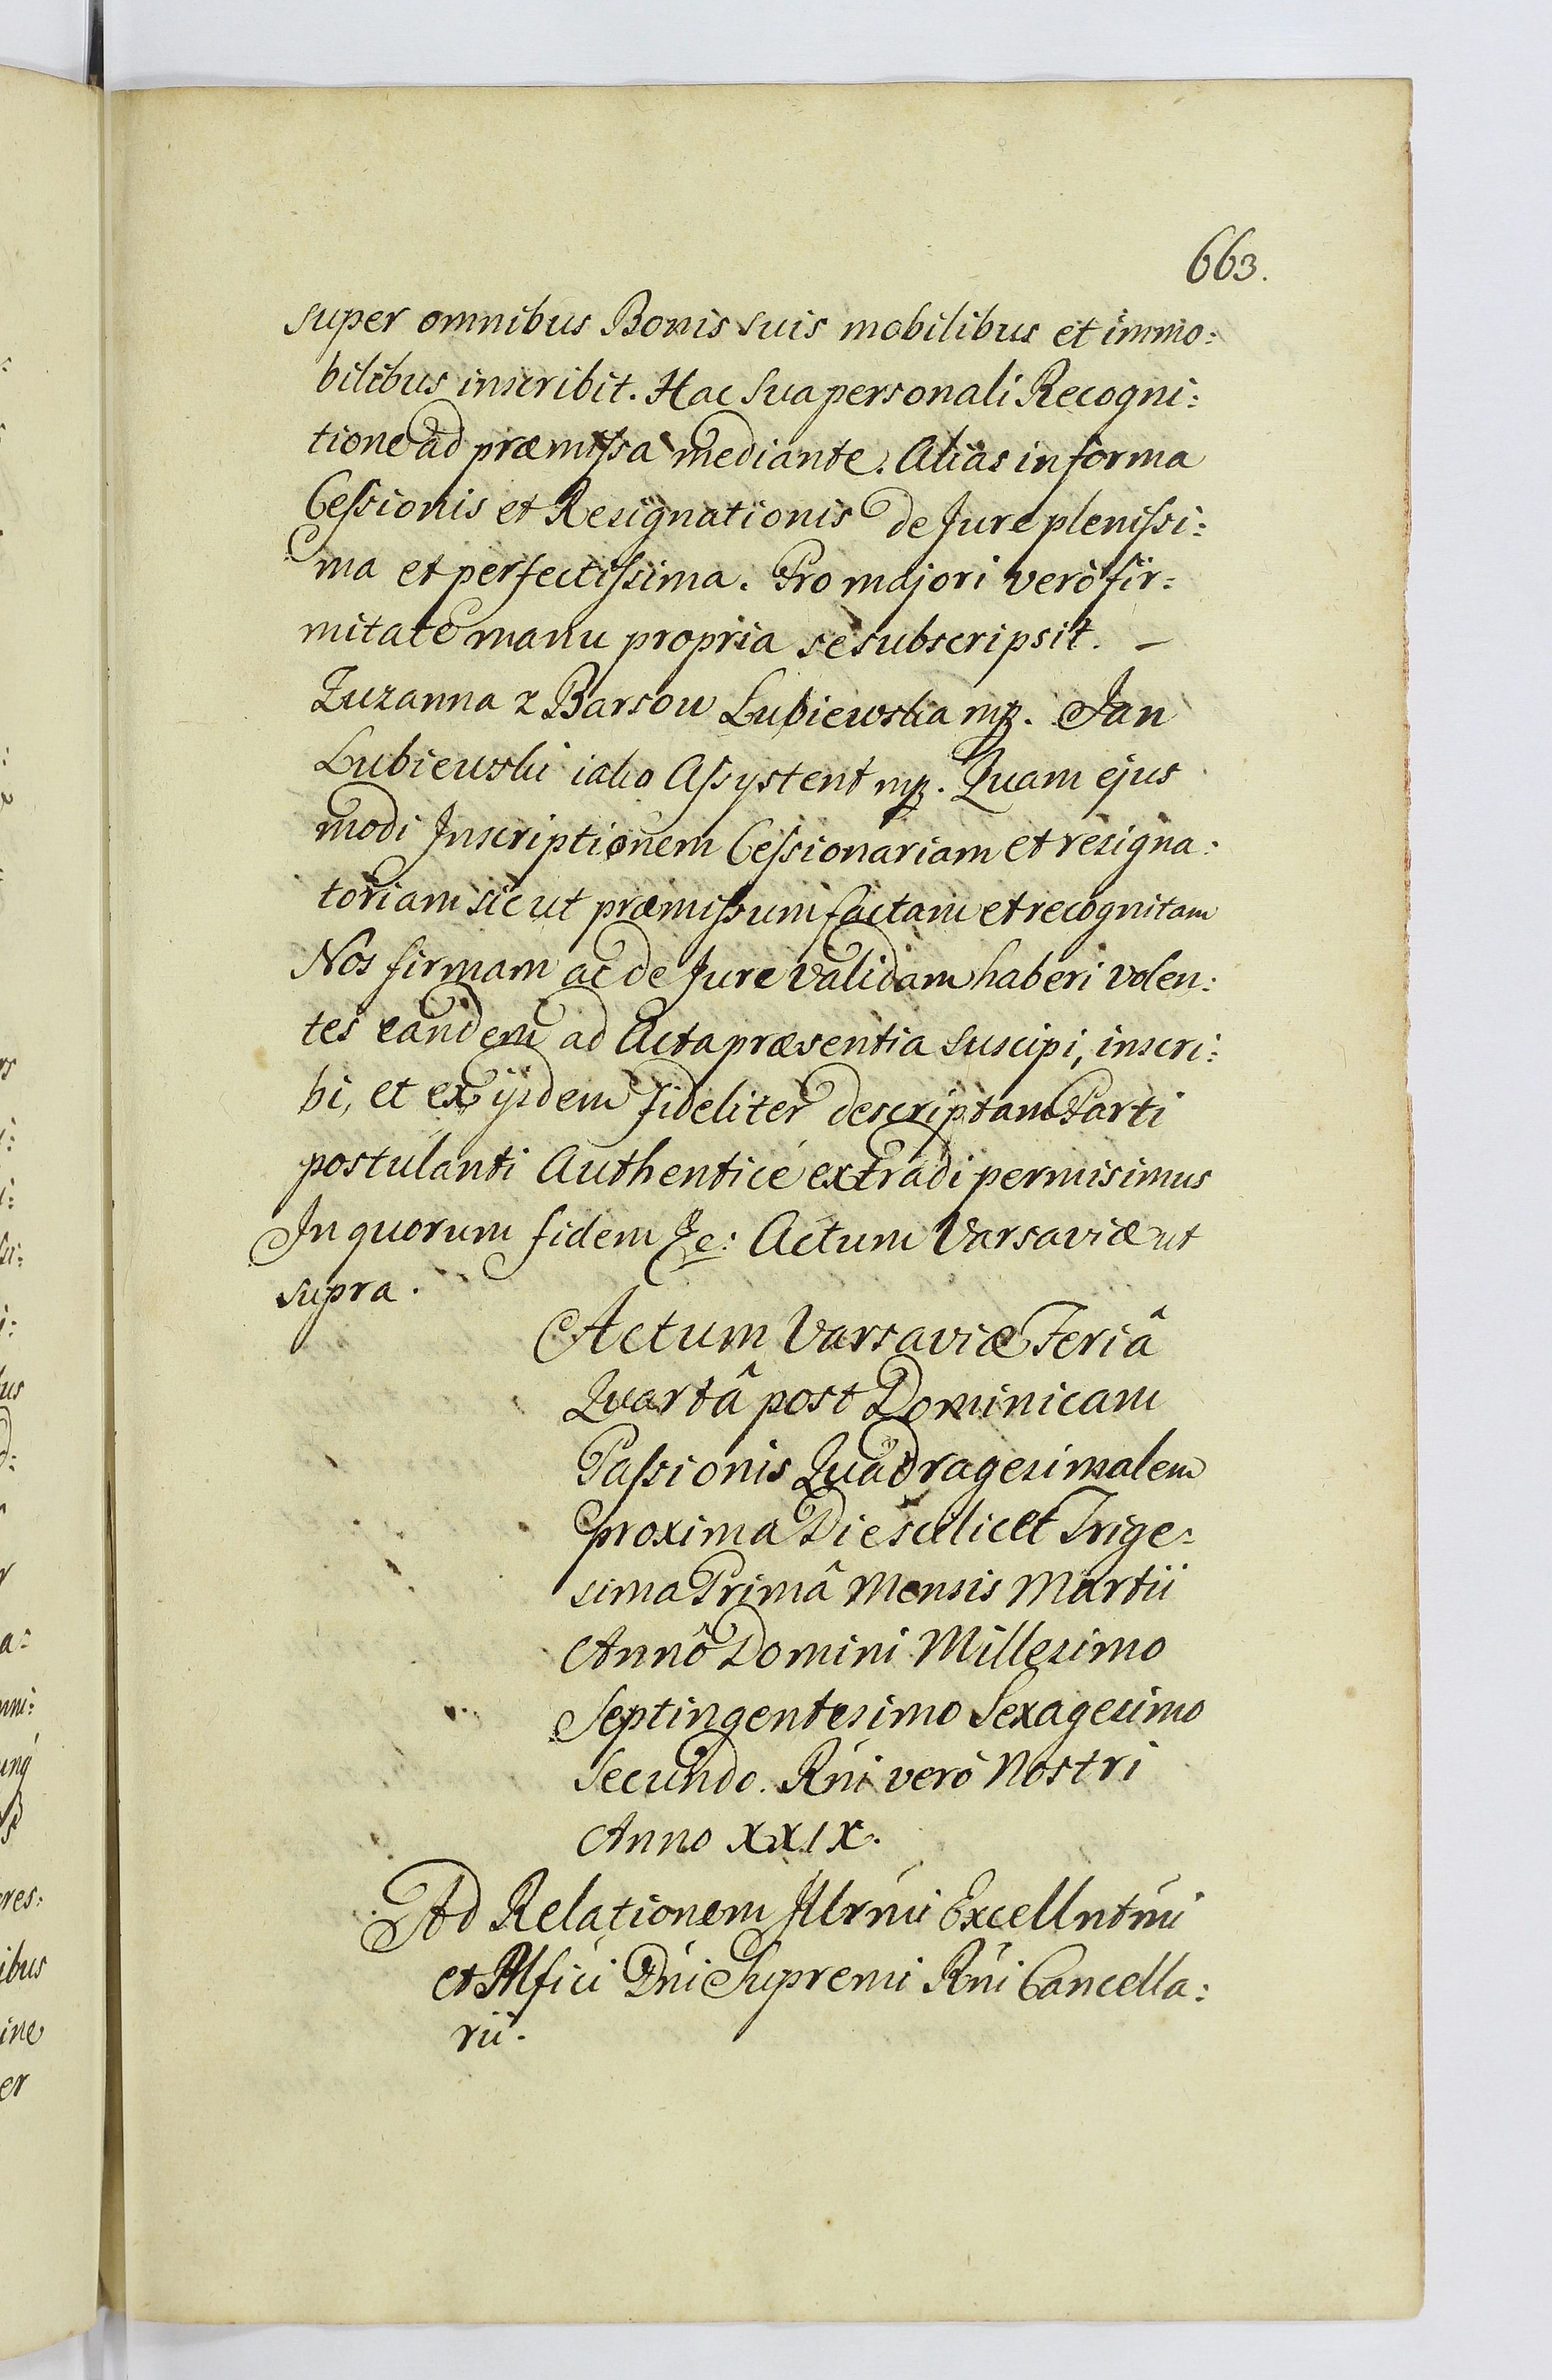 663.
super omnibus Bonis suis mobilibus et immo:
bilibus inscribit. Hac sua personali Recogni:
tione ad præmissa mediante. Alias in forma
Cessionis et Resignationis de Jure plenissi:
ma et perfectissima. Pro majori verò fir:
mitate manu propria se subscripsit. –
Zuzanna z Barsow Lubiewska mp. Jan
Lubiewski iako Assystent mp. Quam ejus
modi Inscriptionem Cessionariam et resigna:
toriam sicut præmissum factam et recognitam
Nos firmam ac de Jure validam haberi volen:
tes eandem ad Acta præsentia suscipi, inscri:
bi, et ex ijsdem fideliter descriptam Parti
postulanti Authenticè extradi permisimus
In quorum fidem &c: Actum Varsaviæ ut
supra.
Actum Varsaviæ Feriâ
Quartâ post Dominicam
Passionis Quadragesimalem
proxima Die scilicet Trige:
sima Primâ Mensis Martii
Annô Domini Millesimo
Septingentesimo Sexagesimo
Secundo. Rni verò Nostri
Anno XXIX.
Ad Relationem Illrmi Excellntmi
et Mfici Dni Supremi Rni Cancella:
rii.